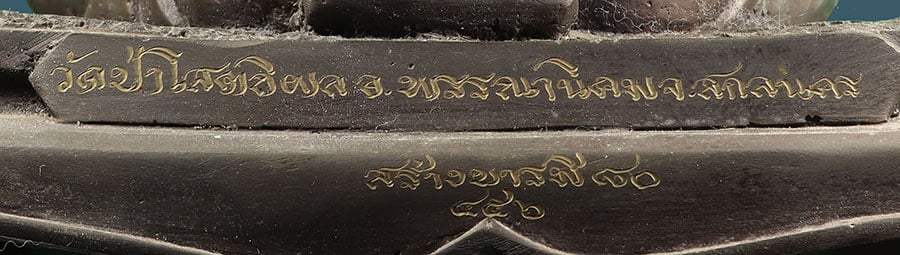 วัดป่าโสตถิผล อ.พรรณานิคม จ.สกลนคร
สร้างบารมี ๘๐
๔๕๖